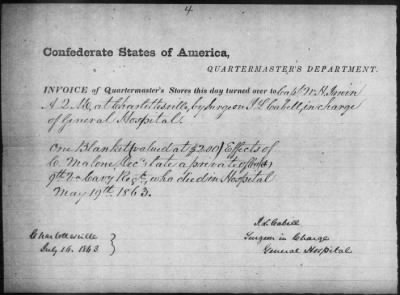 4
Confederate States of America,
QUARTERMASTER'S DEPARTMENT.
INVOICE of Quartermaster's Stores this day turned over to Capt W. H. Irwin
A. Q. M. at Charlottesville, by Surgeon J. L. Cabell, in charge
of General Hospital:
One Blanket (valued at $2.00) Effects of
C. Malone, dec'd, late a private of
9th Cavy Regt, who died in Hospital
May 19th 1863.
Charlottesville
July 16. 1863
J. L. Cabell
Surgeon in Charge
General Hospital